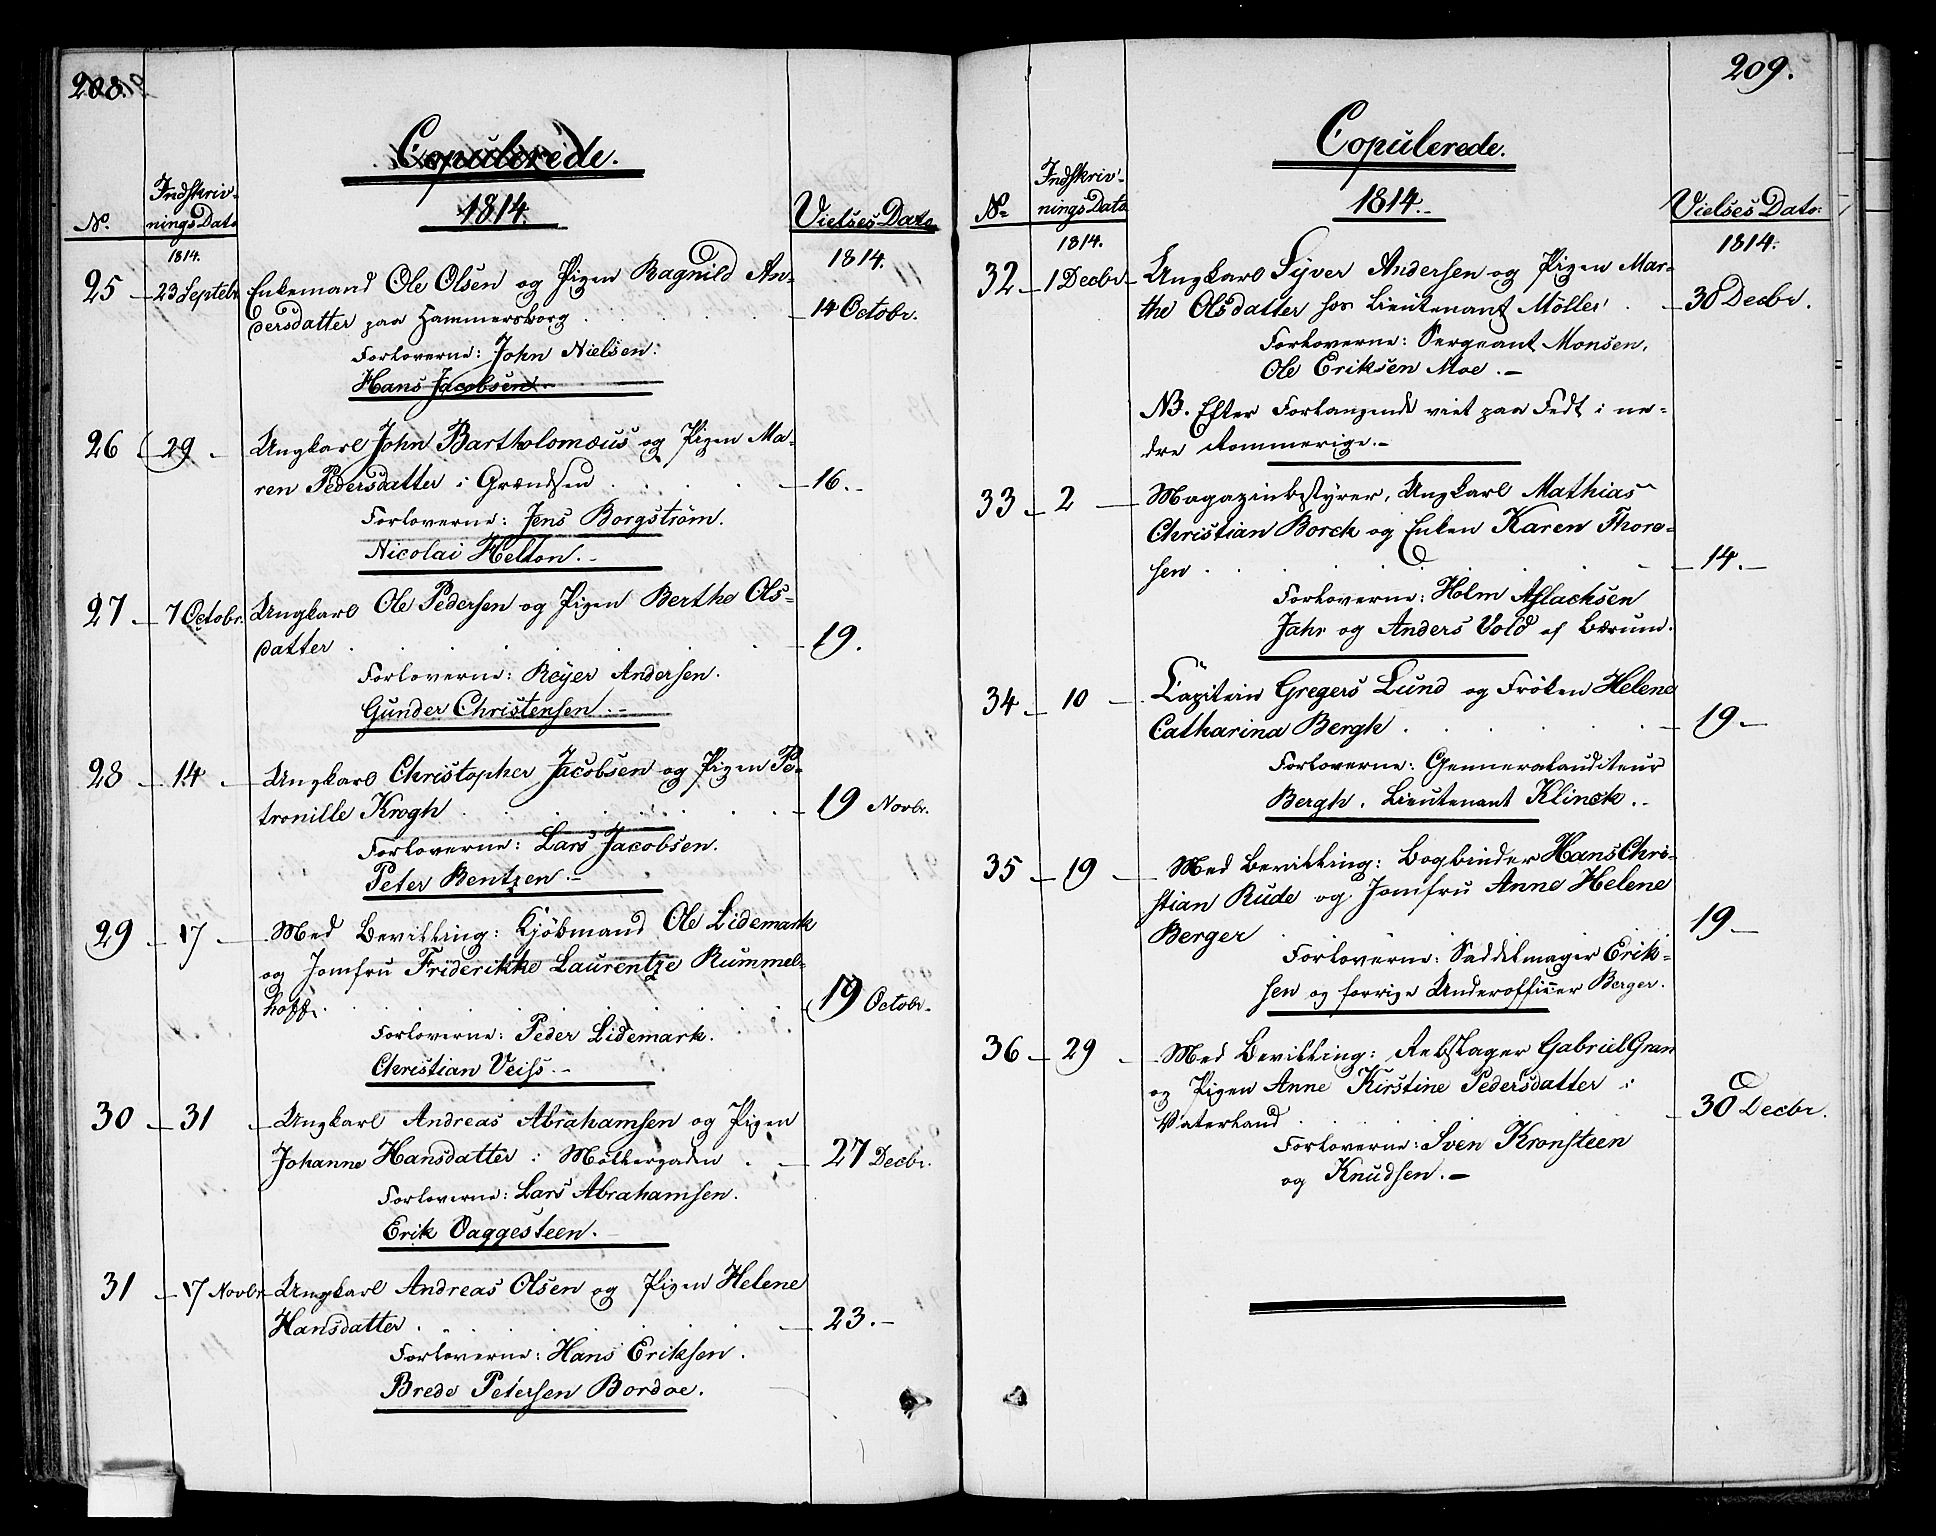 208.
Copulerede.
1814.
No.
Indskriv-
nings Dato
Vielses Dato
1814.
1814.
25 23 Septebr. Enkemand Ole Olsen og Pigen Ragnild An-
dersdatter paa Hammersborg . . . . . 14 Octobr.
Forloverne: John Nielsen.
Hans Jacobsen.
26 29 Ungkarl John Bartholomæus og Pigen Ma-
ren Pedersdatter i Grændsen . . . . 16.
Forloverne: Jens Borgström.
Nicolai Helton.
27 7 Octobr. Ungkarl Ole Pedersen og Pigen Berthe Ols-
datter . . . . . . 19.
Forloverne: Reyer Andersen.
Gunder Christensen.
28 14 Ungkarl Christopher Jacobsen og Pigen Pe-
tronille Krogh . . . . . . 19 Novbr.
Forloverne: Lars Jacobsen.
Peter Bentzen.
29 17 Med Bevilling: Kjöbmand Ole Lidemark
og Jomfru Friderikke Laurentze Rummel-
hoff. . . . . . . 19 Octobr.
Forloverne: Peder Lidemark.
Christian Veiss.
30 31 Ungkarl Andreas Abrahamsen og Pigen
Johanne Hansdatter i Möllergaden . . 27 Decbr.
Forloverne: Lars Abrahamsen.
Erik Vaggesteen.
31 17 Novbr. Ungkarl Andreas Olsen og Pigen Helene
Hansdatter . . . . . . 23.
Forloverne: Hans Eriksen.
Brede Petersen Bordoe.
209.
Copulerede.
1814.
No.
Indskriv-
nings Dato
Vielses Dato:
1814.
1814.
32 1 Decbr. Ungkarl Syver Andersen og Pigen Mar-
the Olsdatter hos Lieutenant Möller . 30 Decbr.
Forloverne: Sergeant Monsen,
Ole Eriksen Moe.
NB. Efter Forlangende viet paa Fedt i ne-
dre Rommerige.
33 2 Magazinbestyrer, Ungkarl Mathias
Christian Borck og Enken Karen Thore-
sen . . . . . . 14.
Forloverne: Holm Aslachsen
Jahr og Anders Vold af Bærum.
34 10 Capitein Gregers Lund og Fröken Helene
Catharina Bergh . . . . . 19
Forloverne: Genneralauditeur
Bergh. Lieutenant Klinck.
35 19 Med Bevilling: Bogbinder Hans Chri-
stian Rude og Jomfru Anne Helene
Berger . 19
Forloverne: Saddelmager Erik-
sen og forrige Underofficer Berger.
36 29 Med Bevilling: Rebslager Gabriel Gran
og Pigen Anne Kirstine Pedersdatter i
Vaterland . . . . . . 30 Decbr.
Forloverne: Sven Kronsteen
og Knudsen.